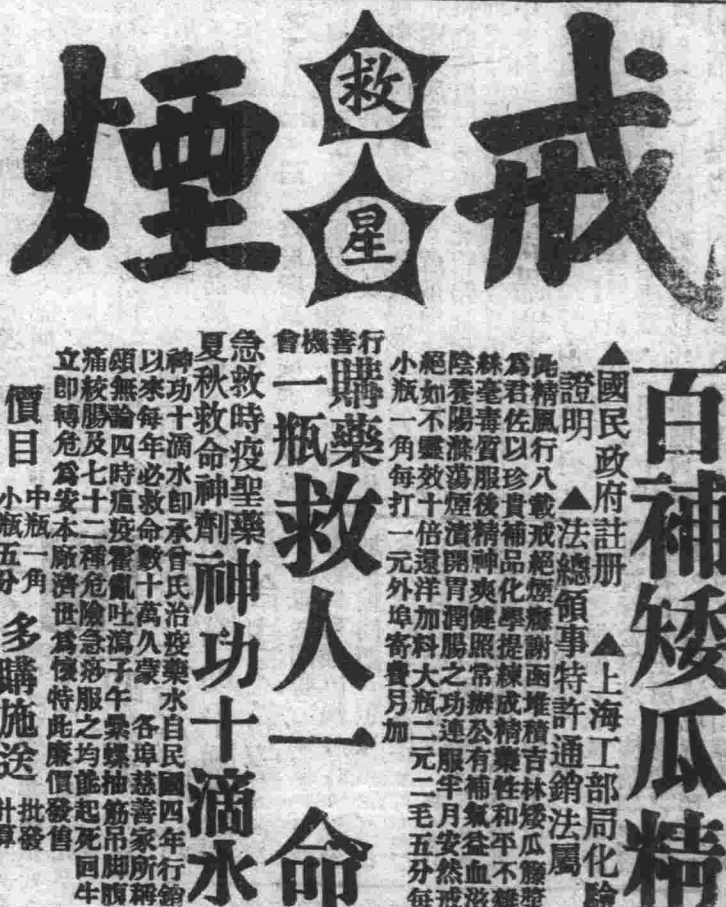 戒救星煙
百補矮瓜精
▲國民政府註册 ▲上海工部局化驗
證明 ▲法總領事特許通銷法屬
此精風行八載戒絕煙癮謝函堆積吉林矮瓜籐
爲君佐以珍貴補品化學提練成精藥性和平不雜
絲毫毒質服後精神爽健照常辦公有補氣益血滋
陰養陽滌蕩煙漬開胃潤腸之功連服半月安然戒
絕如不靈效十倍還洋加料大瓶二元二毛五分每
小瓶一角每打一元外埠寄費月加
行善機會
購藥
一瓶
救人一命
急救時疫聖藥
夏秋救命神劑
神功十滴水
神功十滴水即承曾氏治疫藥水自民國四年行銷
以來每年必救命數十萬久蒙 各埠慈善家所稱
頌無論四時瘟疫霍亂吐瀉子午螺抽筋吊脚腹
痛絞腸及七十二種危險急痧服之均能起死回生
立即轉危爲安本廠濟世爲懷特此廉價發售
價目
中瓶一角
小瓶五分
多購施送
批發
計算